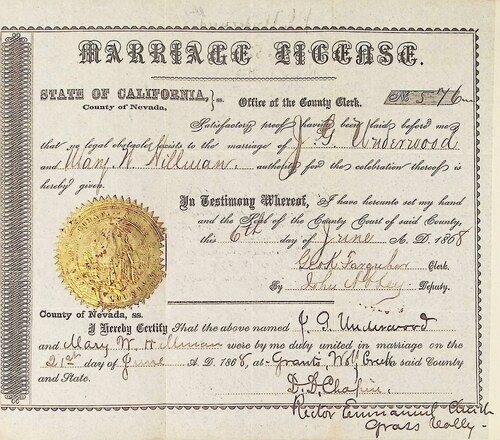 MARRIAGE LICENSE.
STATE OF CALIFORNIA, } ss.
County of Nevada,
Office of the County Clerk.
No 576
Satisfactory proof having been laid before me
that no legal obstacle exists to the marriage of J. G. Underwood
and Mary W. Hillman. authority for the celebration thereof is
hereby given.
In Testimony Whereof, I have hereunto set my hand
and the Seal of the County Court of said County,
this 6th day of June A. D. 1868
Geo K Farquhar Clerk.
By John Deputy.
County of Nevada, ss.
I Hereby Certify That the above named J. G. Underwood
and Mary W. Hillman were by me duly united in marriage on the
day of June A. D. 1868, at Grants, Wolf Creek said County
and State.
D. D. Chapin.
Rector Emmanuel Church
Grass Valley